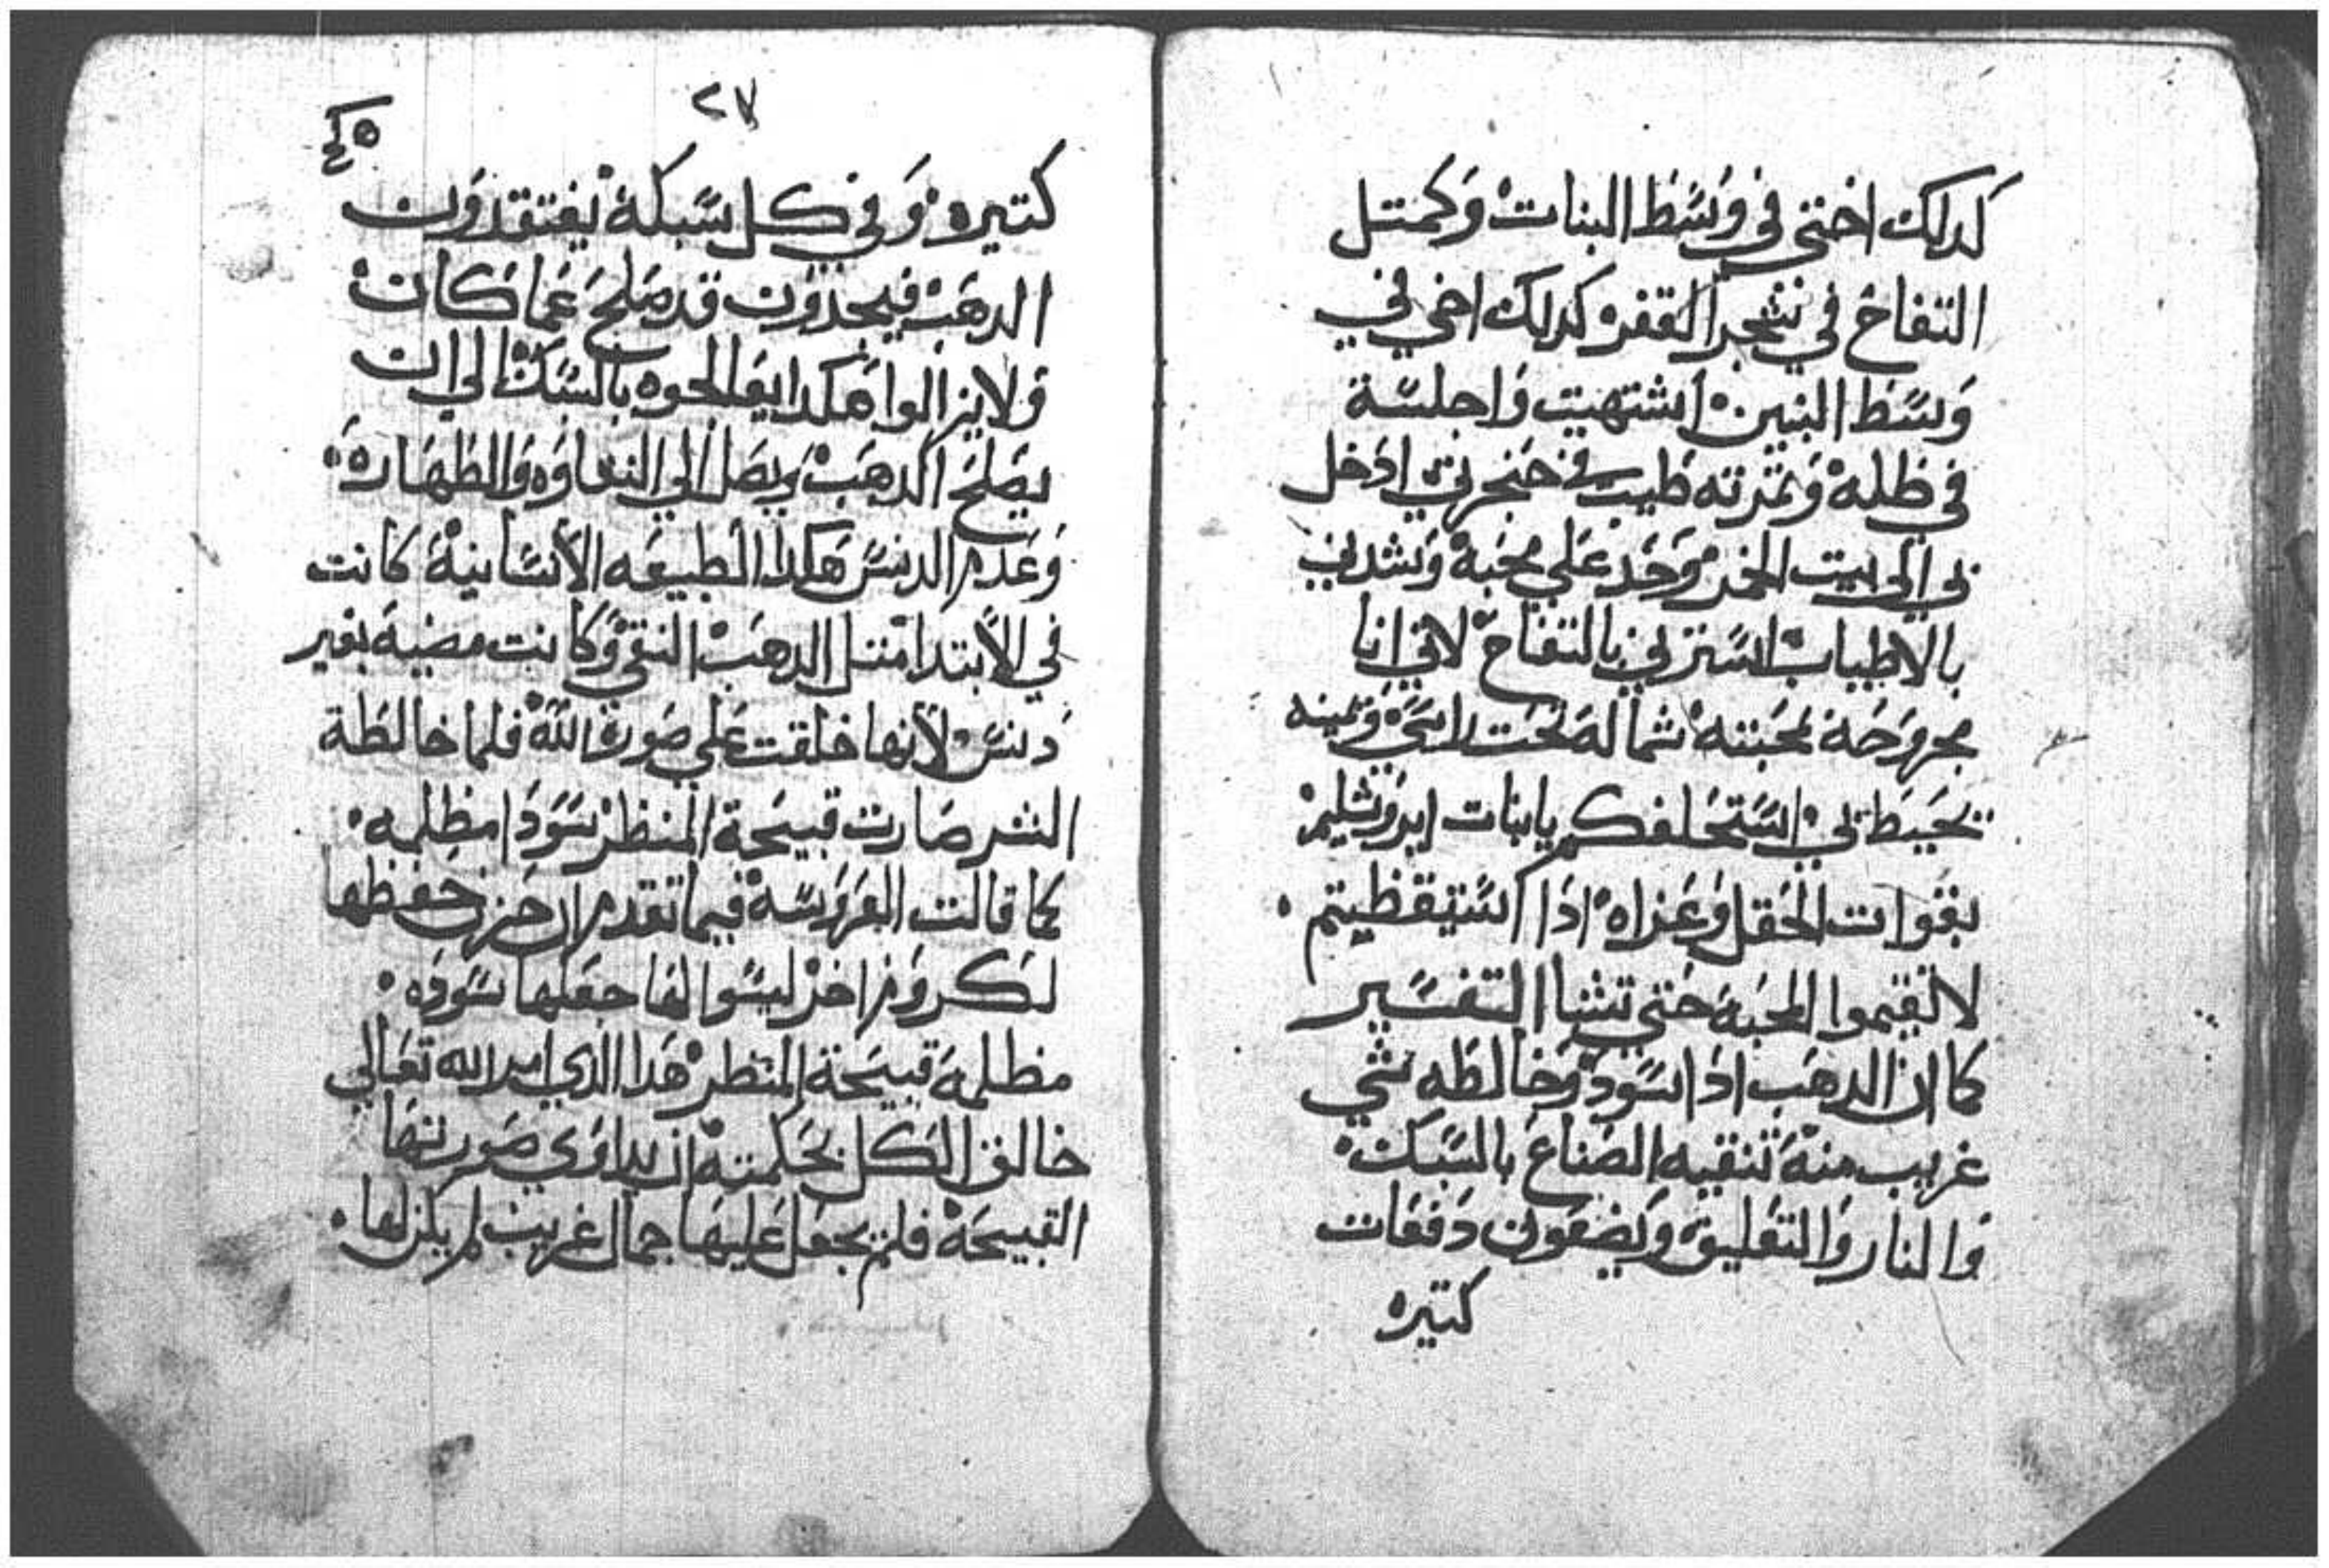 كدلك اختي في وسط البنات وكمتل
التفاح في شجر القفر كدلك اخي في
وسط البنين اشتهيت واجلسة
في ظله وثمرته طيب في حنجرتي ادخل
بي الى بيت الخمر وحد علي محبة وشدني
بالاطياب استرني بالتفاح لاني انا
مجروحة لمحبته شماله تحت راسي ويمينه
تحيط بي استحلفكم يابنات ايروشليم
بقوات الحقل وعزاه اذا استيقظيتم
لا تقيموا المحبة حتي تشا التفسير
كما ان الدهب اذا اسود وخالطه شي
غريب منه تنقيه الصناع بالسبك
والنار والتعليق ويضعون دفعات
كتيره
٢٧
كتيره وفي كل سبكة يفتقدون
الدهب فيجدون قد صلح عما كان
ولا يزالوا هكدا يعالجوه بالسبك الي ان
يصلح الدهب ويصل الي النقاوه والطهاره
وعدم الدنس هكدا الطبيعه الانسانية كانت
في الابتدا متل الدهب النقي وكانت مضية بغير
دنس لانها خلقت علي صورة الله فلما خالطة
الشر صارت قبيحة المنظر سودا مظلمه
كما قالت العروسة فيما تقدم ان حزن حفظها
لكروم اخر ليسوا لها جعلها سوده
مظلمة قبيحة المنظر هدا الدي امر الله تعالي
خالق الكل بحكمته ان يداوي صورتها
القبيحة فلم يجعل عليها جمال غريب لم يكن لها